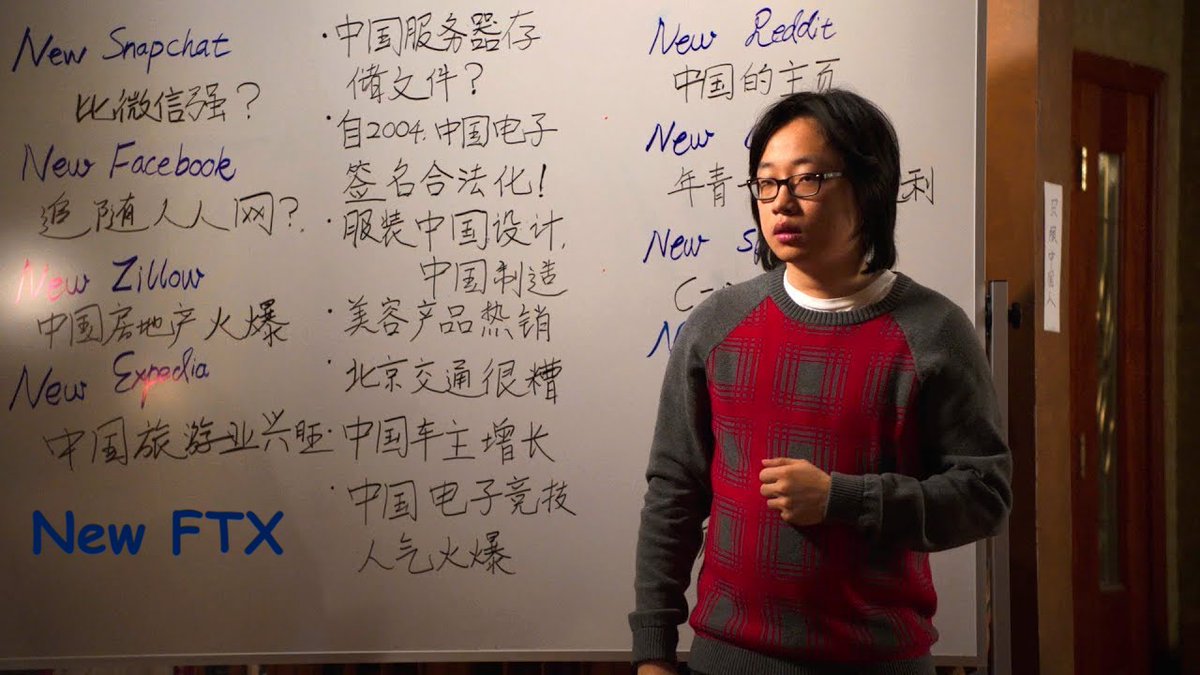 New Snapchat
比微信强？
New Facebook
追随人人网？
New Zillow
中国房地产火爆
New Expedia
中国旅游业兴旺
New FTX
·中国服务器存
储文件？
·自2004.中国电子
签名合法化！
·服装中国设计，
中国制造
·美容产品热销
·北京交通很糟
·中国车主增长
·中国电子竞技
人气火爆
New Reddit
中国的主页
New
年青
利
New
C-